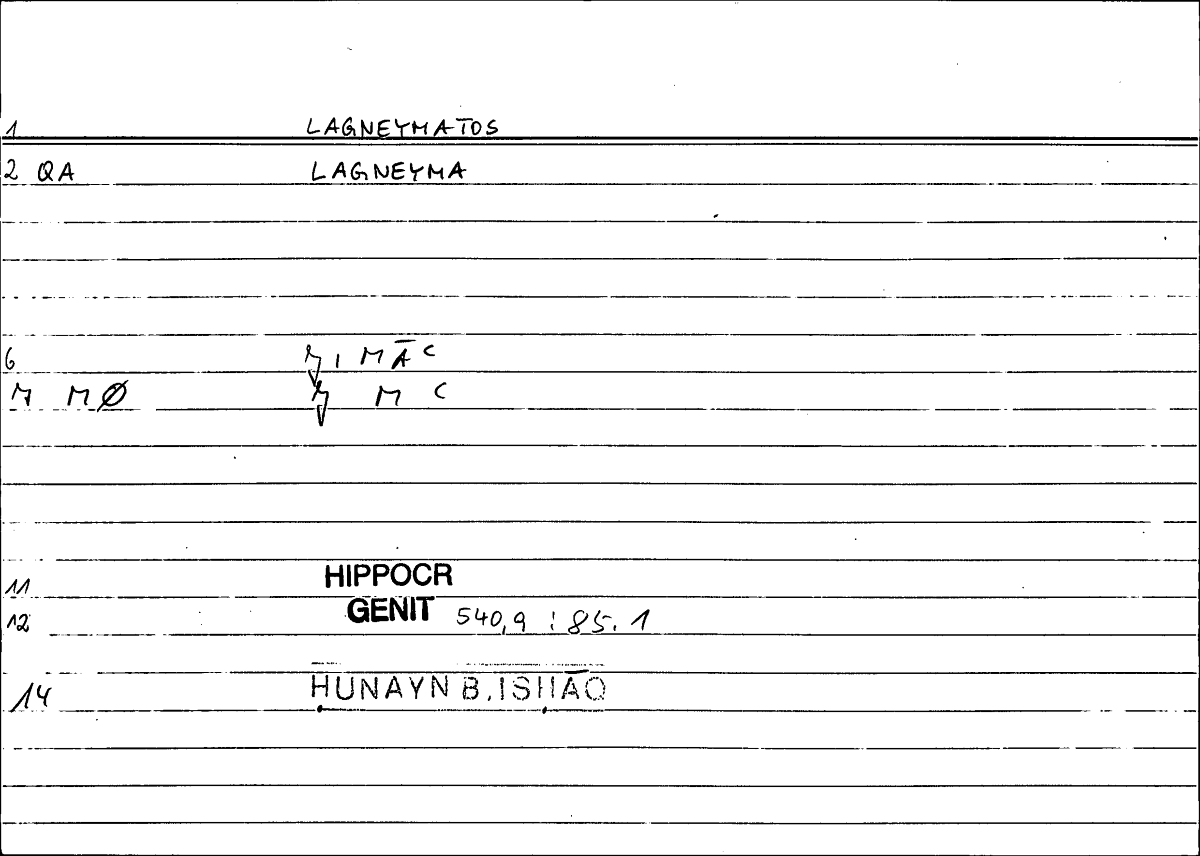 1 LAGNEYMATOS
2 QA LAGNEYMA
6 M Ā C
7 M Ø M C
11 HIPPOCR
12 GENIT 540,9 : 85.1
14 ḤUNAYN B. ISḤĀQ